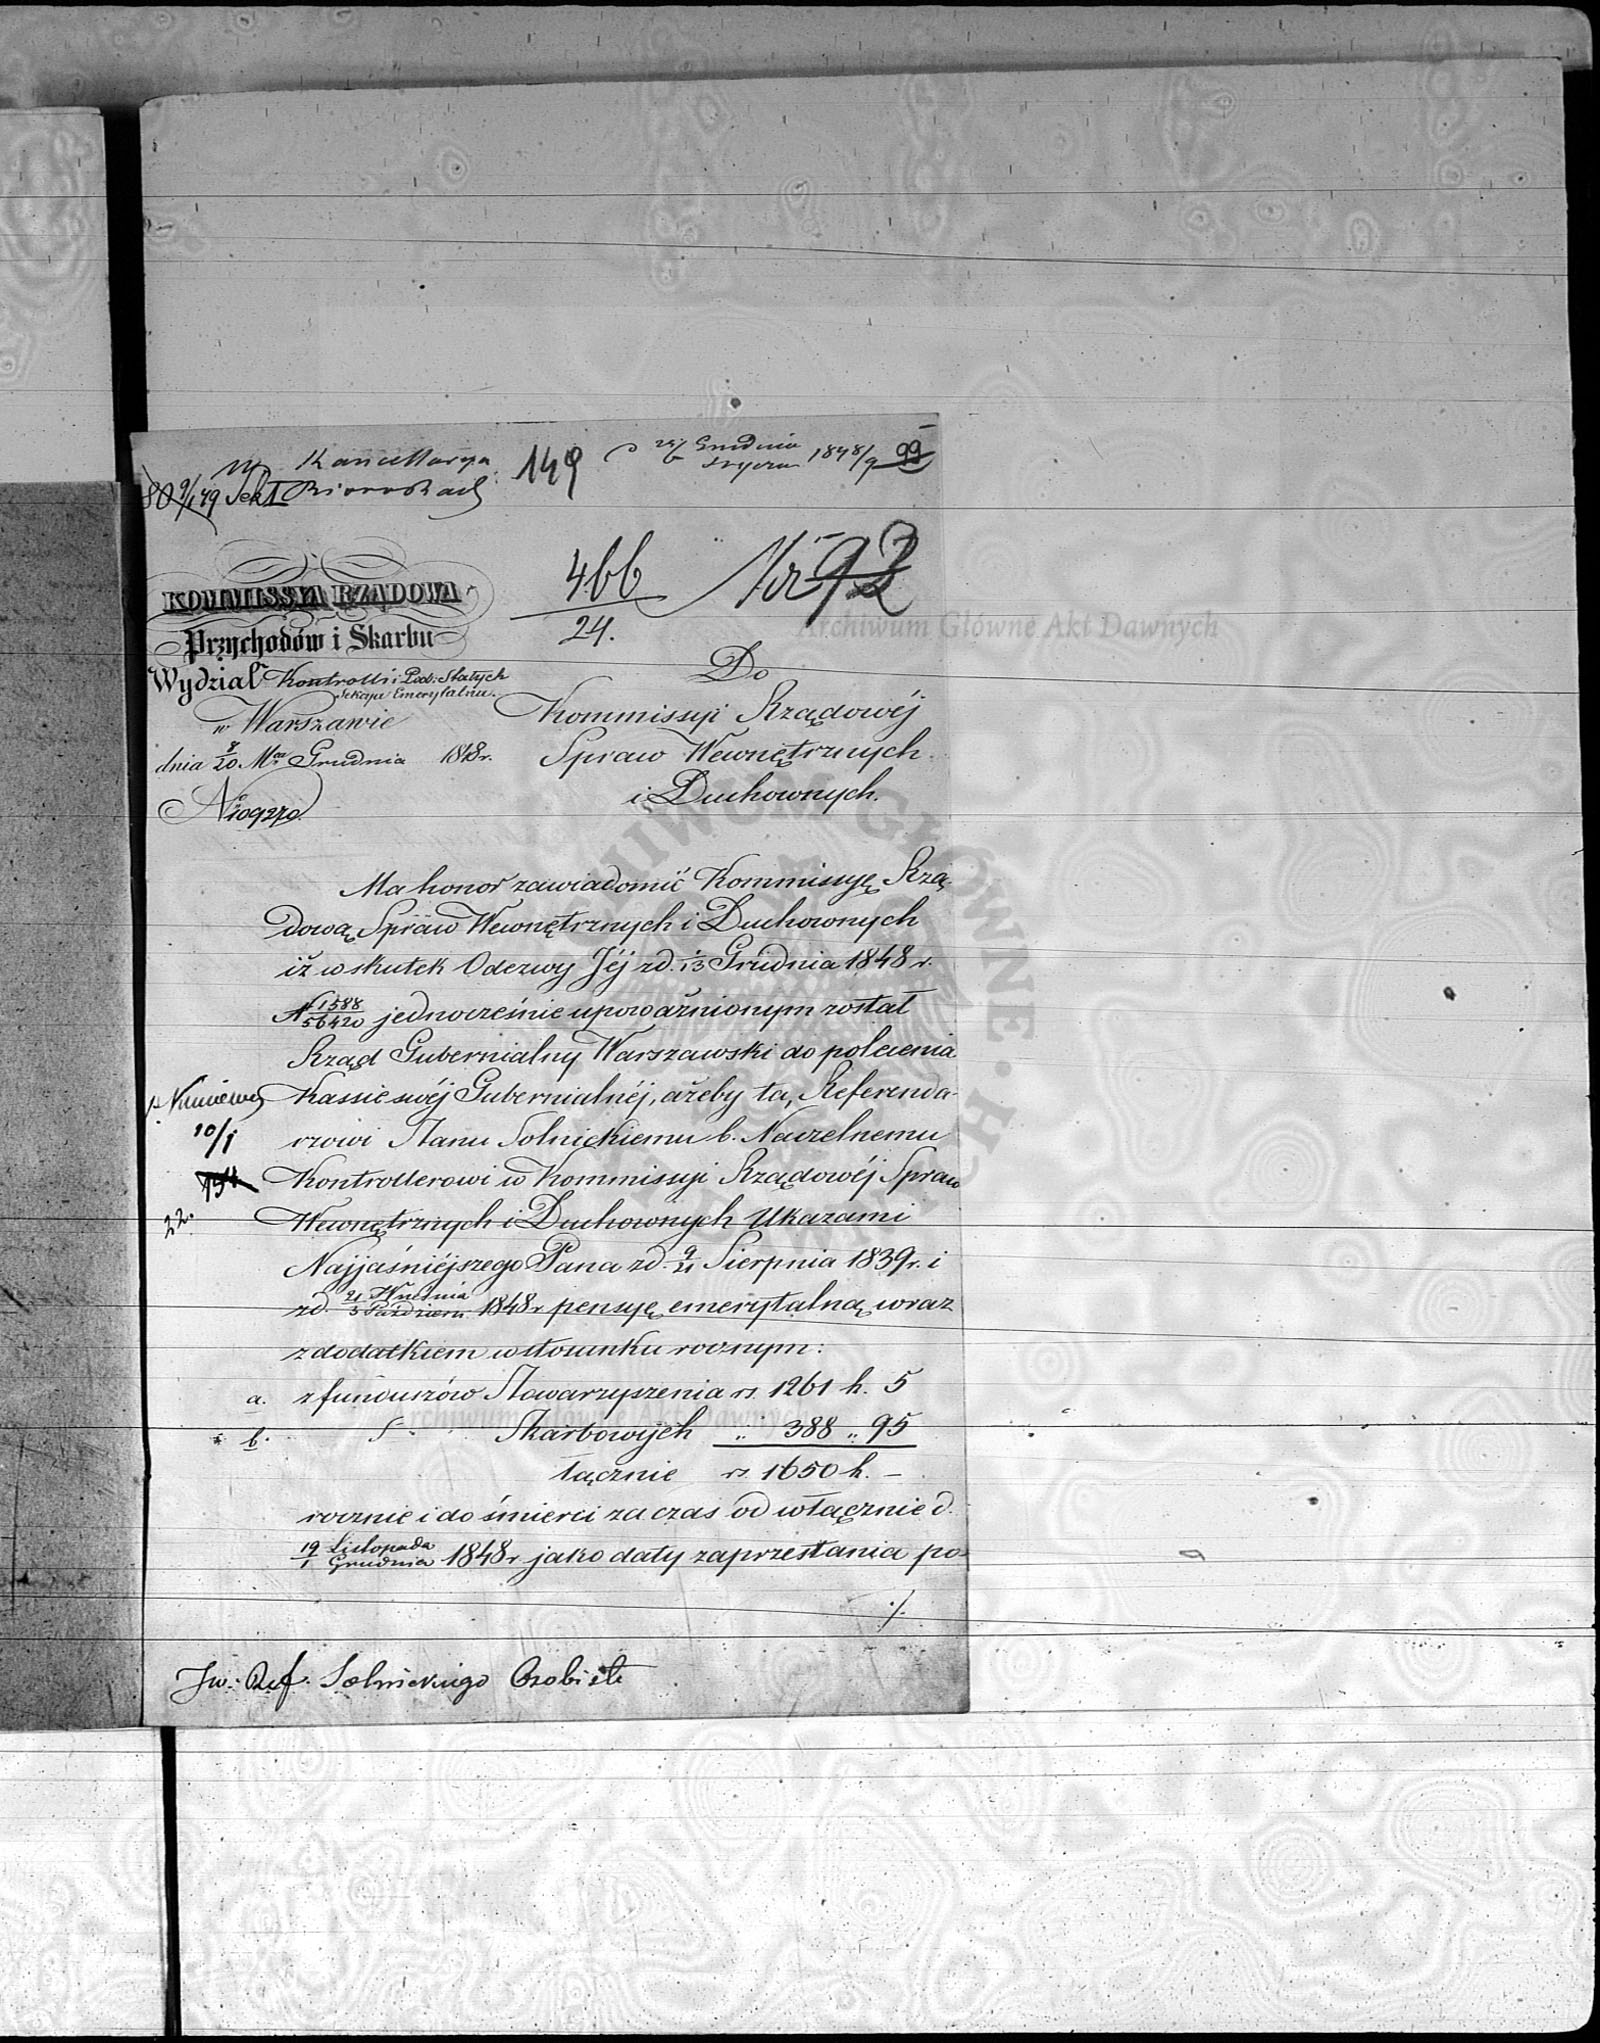 Kancellarya 149 d 25/6 Grudnia Stycznia 1848/9 99
80 9/1 49 Sek I
466 Nr 92
24.
KOMMISSYA RZĄDOWA
Przychodów i Skarbu
Wydział Kontrolli i Pod: Stałych
Sekcya Emerytalna.
w Warszawie
dnia 8/20 Mca Grudnia 1848 r.
Do
Kommissyi Rządowéj
Spraw Wewnętrznych
i Duchownych.
Ma honor zawiadomić Kommissyę Rzą-
dową Spraw Wewnętrznych i Duchownych
iż w skutek Odezwy Jéj z d. 1/13 Grudnia 1848 r.
N 1588/56420 jednocześnie upoważnionym został
Rząd Gubernialny Warszawski do polecenia
Kassie swéj Gubernialnéj, ażeby ta, Referenda-
10/1
rzowi Stanu Solnickiemu b. Naczelnemu
Kontrollerowi w Kommissyi Rządowéj Spraw
22.
Wewnętrznych i Duchownych Ukazami
Najjaśniéjszego Pana z d. 9/21 Sierpnia 1839 r. i
z d. 21 Września/3 Paździer: 1848 r pensyę emerytalną wraz
z dodatkiem w stosunku rocznym:
a. z funduszów Stowarzyszenia rs. 1261 k. 5
b. Skarbowych „ 388 „ 95
łącznie rs. 1650 k. —
rocznie i do śmierci za czas od włącznie d.
19 Listopada/1 Grudnia 1848 r jako daty zaprzestania po-
./.
Jw. Ref. Solnickiego Osobiste
Archiwum Główne Akt Dawnych
Archiwum Główne Akt Dawnych